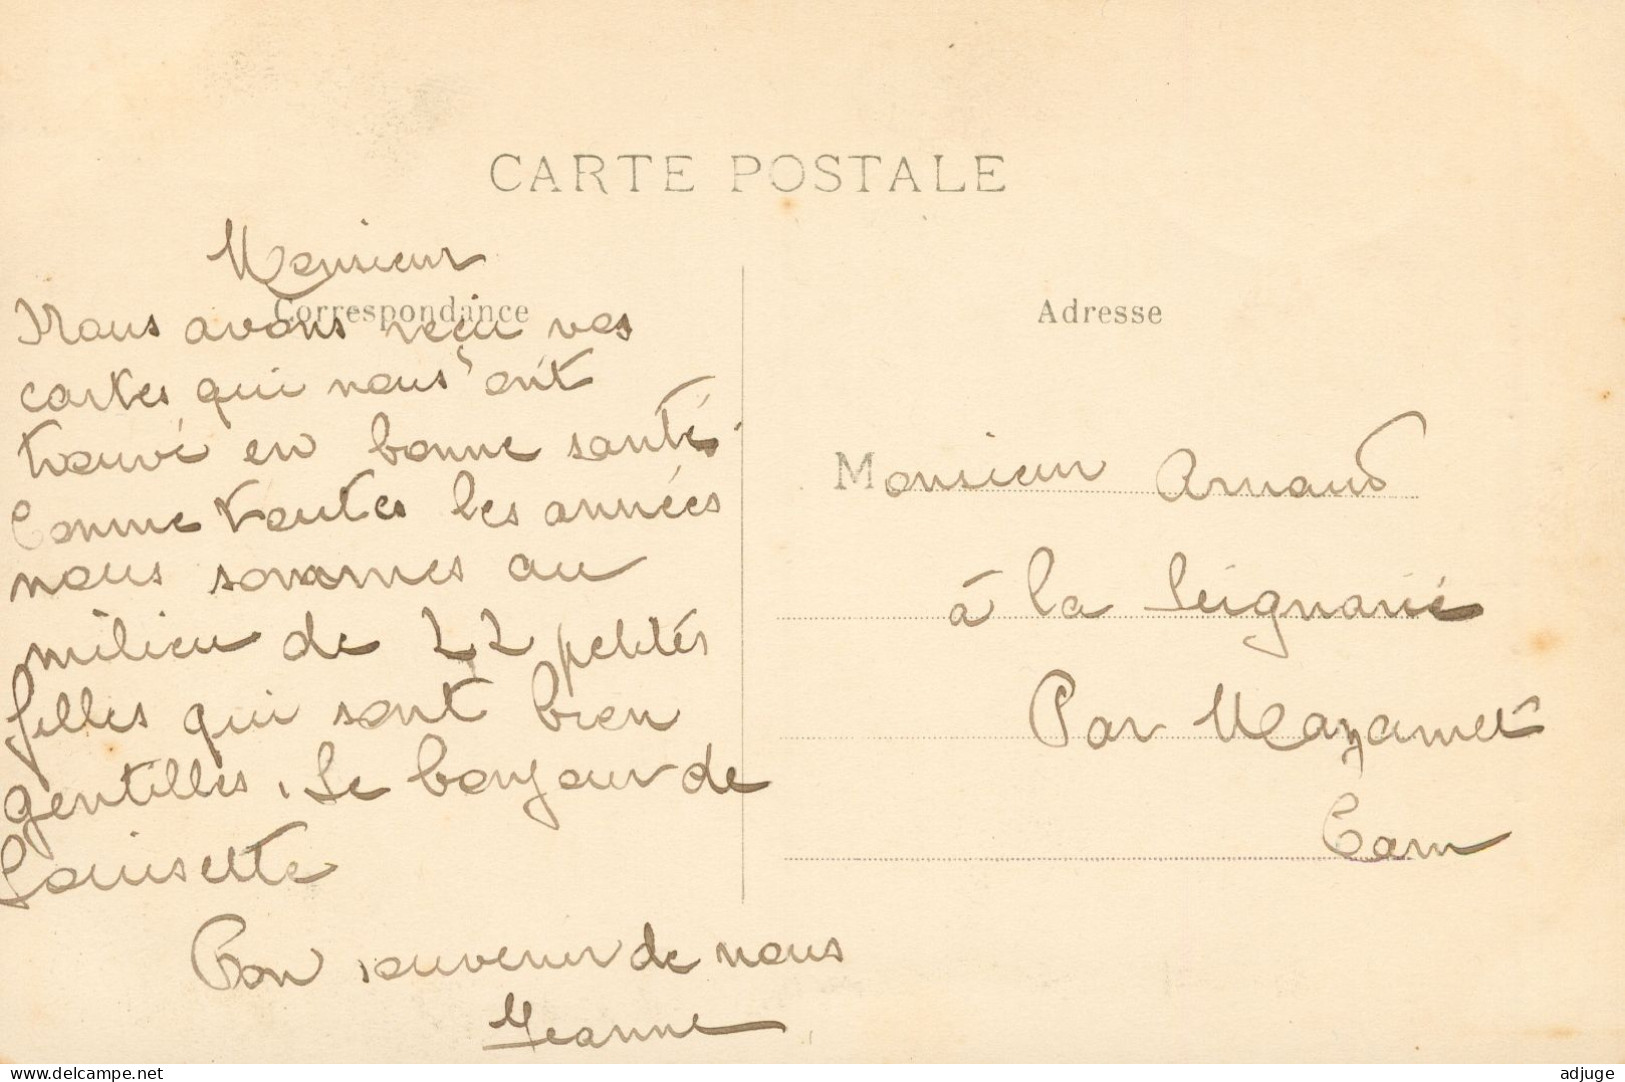 CARTE POSTALE
Correspondance
Monsieur
Nous avons reçu vos
cartes qui nous ont
trouvé en bonne santé.
Comme toutes les années
nous sommes au
milieu de 22 petites
filles qui sont bien
gentilles. Le bonjour de
Louisette
Bon souvenir de nous
Jeanne
Adresse
Monsieur Arnaud
à la Seignarié
Par Mazamet
Tarn
delcampe.net
adjuge